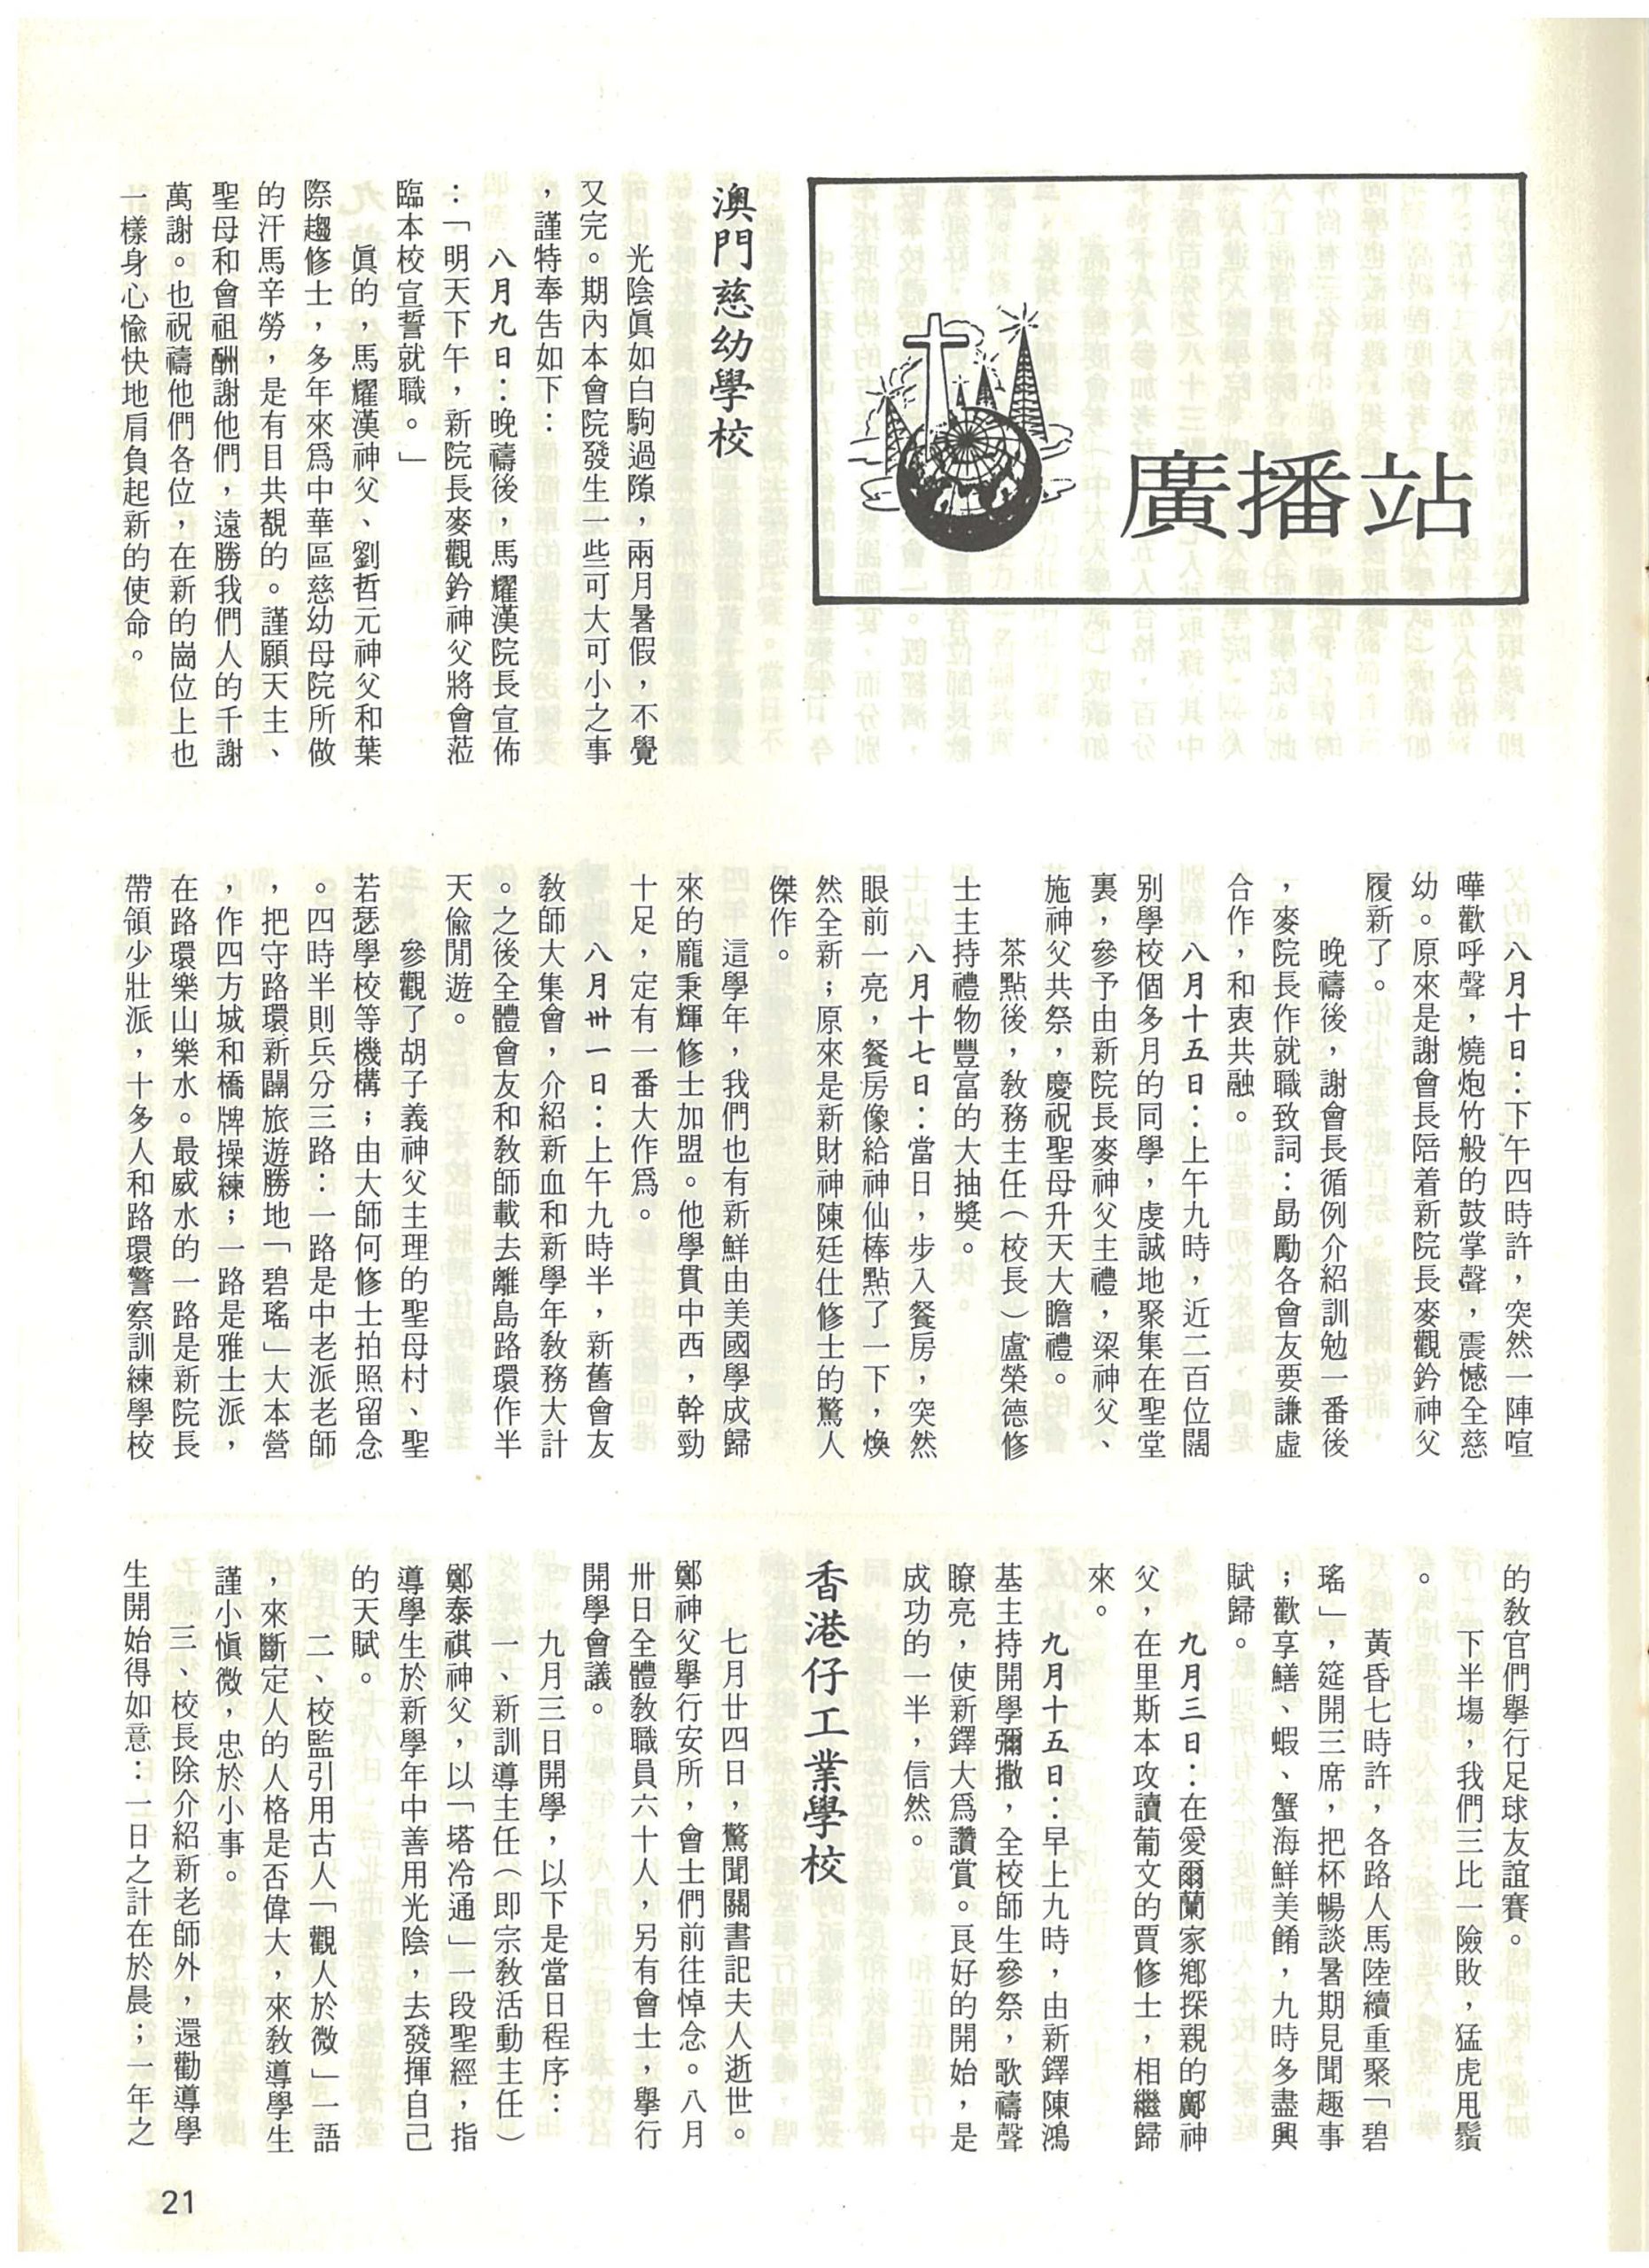 廣播站
澳門慈幼學校
光陰眞如白駒過隙，兩月暑假，不覺
又完。期內本會院發生一些可大可小之事
，謹特奉告如下：
八月九日：晚禱後，馬耀漢院長宣佈
：「明天下午，新院長麥觀鈐神父將會蒞
臨本校宣誓就職。」
眞的，馬耀漢神父、劉哲元神父和葉
際趨修士，多年來爲中華區慈幼母院所做
的汗馬辛勞，是有目共覩的。謹願天主、
聖母和會祖酬謝他們，遠勝我們人的千謝
萬謝。也祝禱他們各位，在新的崗位上也
一樣身心愉快地肩負起新的使命。
八月十日：下午四時許，突然一陣喧
嘩歡呼聲，燒炮竹般的鼓掌聲，震憾全慈
幼。原來是謝會長陪着新院長麥觀鈐神父
履新了。
晚禱後，謝會長循例介紹訓勉一番後
，麥院長作就職致詞：勗勵各會友要謙虛
合作，和衷共融。
八月十五日：上午九時，近二百位闊
别學校個多月的同學，虔誠地聚集在聖堂
裏，參予由新院長麥神父主禮，梁神父、
施神父共祭，慶祝聖母升天大瞻禮。
茶點後，敎務主任（校長）盧榮德修
士主持禮物豐富的大抽獎。
八月十七日：當日，步入餐房，突然
眼前一亮，餐房像給神仙棒點了一下，煥
然全新；原來是新財神陳廷仕修士的驚人
傑作。
這學年，我們也有新鮮由美國學成歸
來的龐秉輝修士加盟。他學貫中西，幹勁
十足，定有一番大作爲。
八月卅一日：上午九時半，新舊會友
敎師大集會，介紹新血和新學年敎務大計
。之後全體會友和敎師載去離島路環作半
天偸閒遊。
參觀了胡子義神父主理的聖母村、聖
若瑟學校等機構；由大師何修士拍照留念
。四時半則兵分三路：一路是中老派老師
，把守路環新闢旅遊勝地「碧瑤」大本營
，作四方城和橋牌操練；一路是雅士派，
在路環樂山樂水。最威水的一路是新院長
帶領少壯派，十多人和路環警察訓練學校
的敎官們學行足球友誼賽。
下半塲，我們三比一險敗，猛虎甩鬚
。
黃昏七時許，各路人馬陸續重聚「碧
瑤」，筵開三席，把杯暢談暑期見聞趣事
；歡享鱔、蝦、蟹海鮮美餚，九時多盡興
賦歸。
九月三日：在愛爾蘭家鄉探親的鄺神
父，在里斯本攻讀葡文的賈修士，相繼歸
來。
九月十五日：早上九時，由新鐸陳鴻
基主持開學彌撒，全校師生參祭，歌禱聲
瞭亮，使新鐸大爲讚賞。良好的開始，是
成功的一半，信然。
香港仔工業學校
七月廿四日，驚聞關書記夫人逝世。
鄭神父擧行安所，會士們前往悼念。八月
卅日全體敎職員六十人，另有會士，擧行
開學會議。
九月三日開學，以下是當日程序：
一、新訓導主任（即宗敎活動主任）
鄭泰祺神父，以「塔冷通」一段聖經，指
導學生於新學年中善用光陰，去發揮自己
的天賦。
二、校監引用古人「觀人於微」一語
，來斷定人的人格是否偉大，來敎導學生
謹小愼微，忠於小事。
三、校長除介紹新老師外，還勸導學
生開始得如意：一日之計在於晨；一年之
21